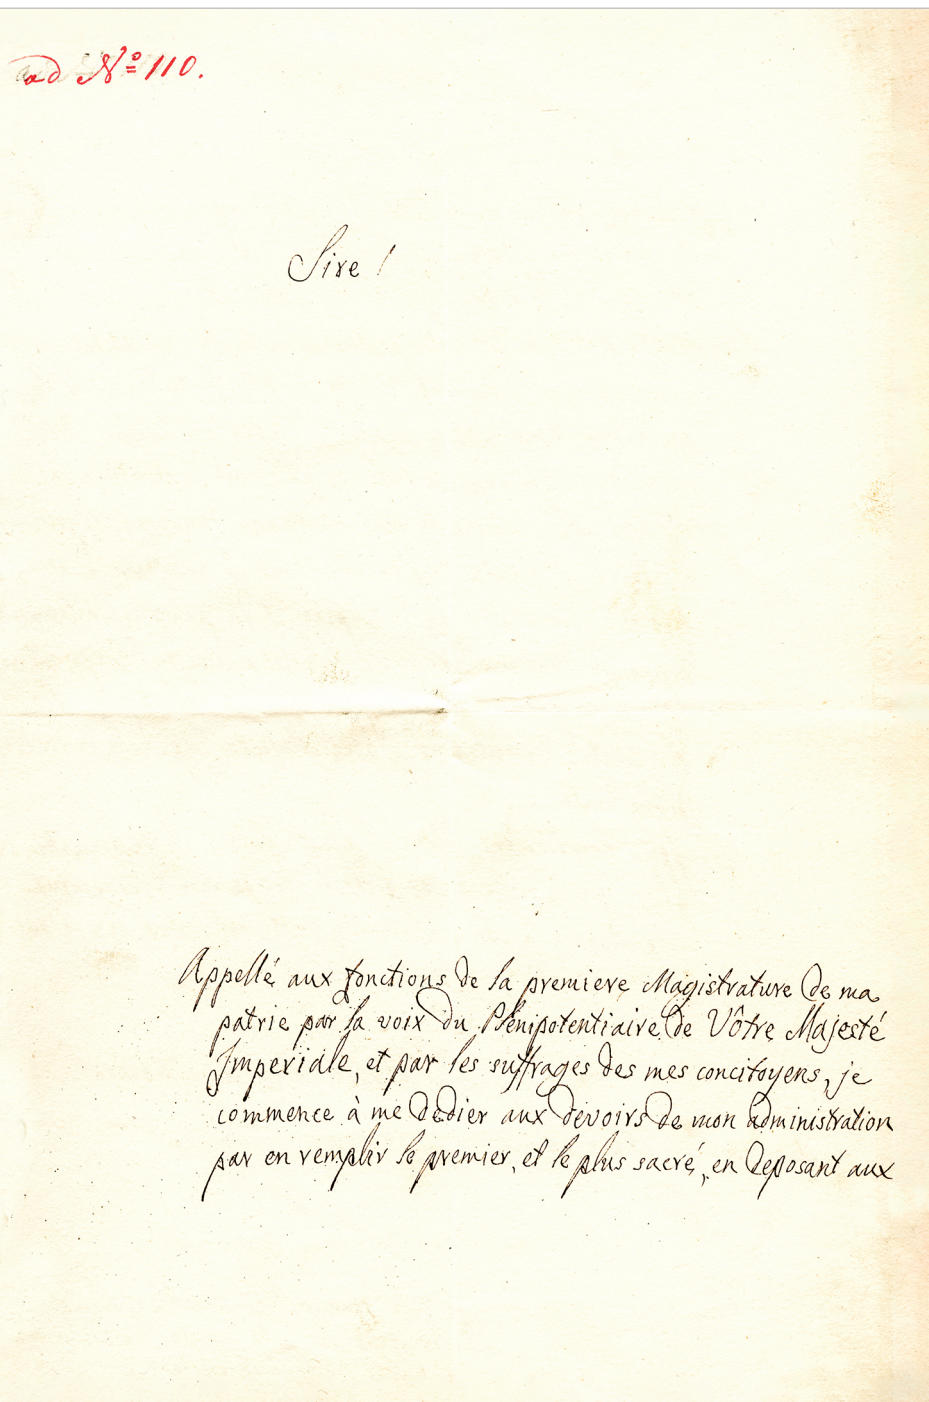 ad No 110.
Sire !
Appellé aux fonctions de la premiere Magistrature de ma
patrie par la voix du Plénipotentiaire de Vôtre Majesté
Imperiale, et par les suffrages des mes concitoyens, je
commence à me dedier aux devoirs de mon administration
par en remplir le premier, et le plus sacré, en deposant aux